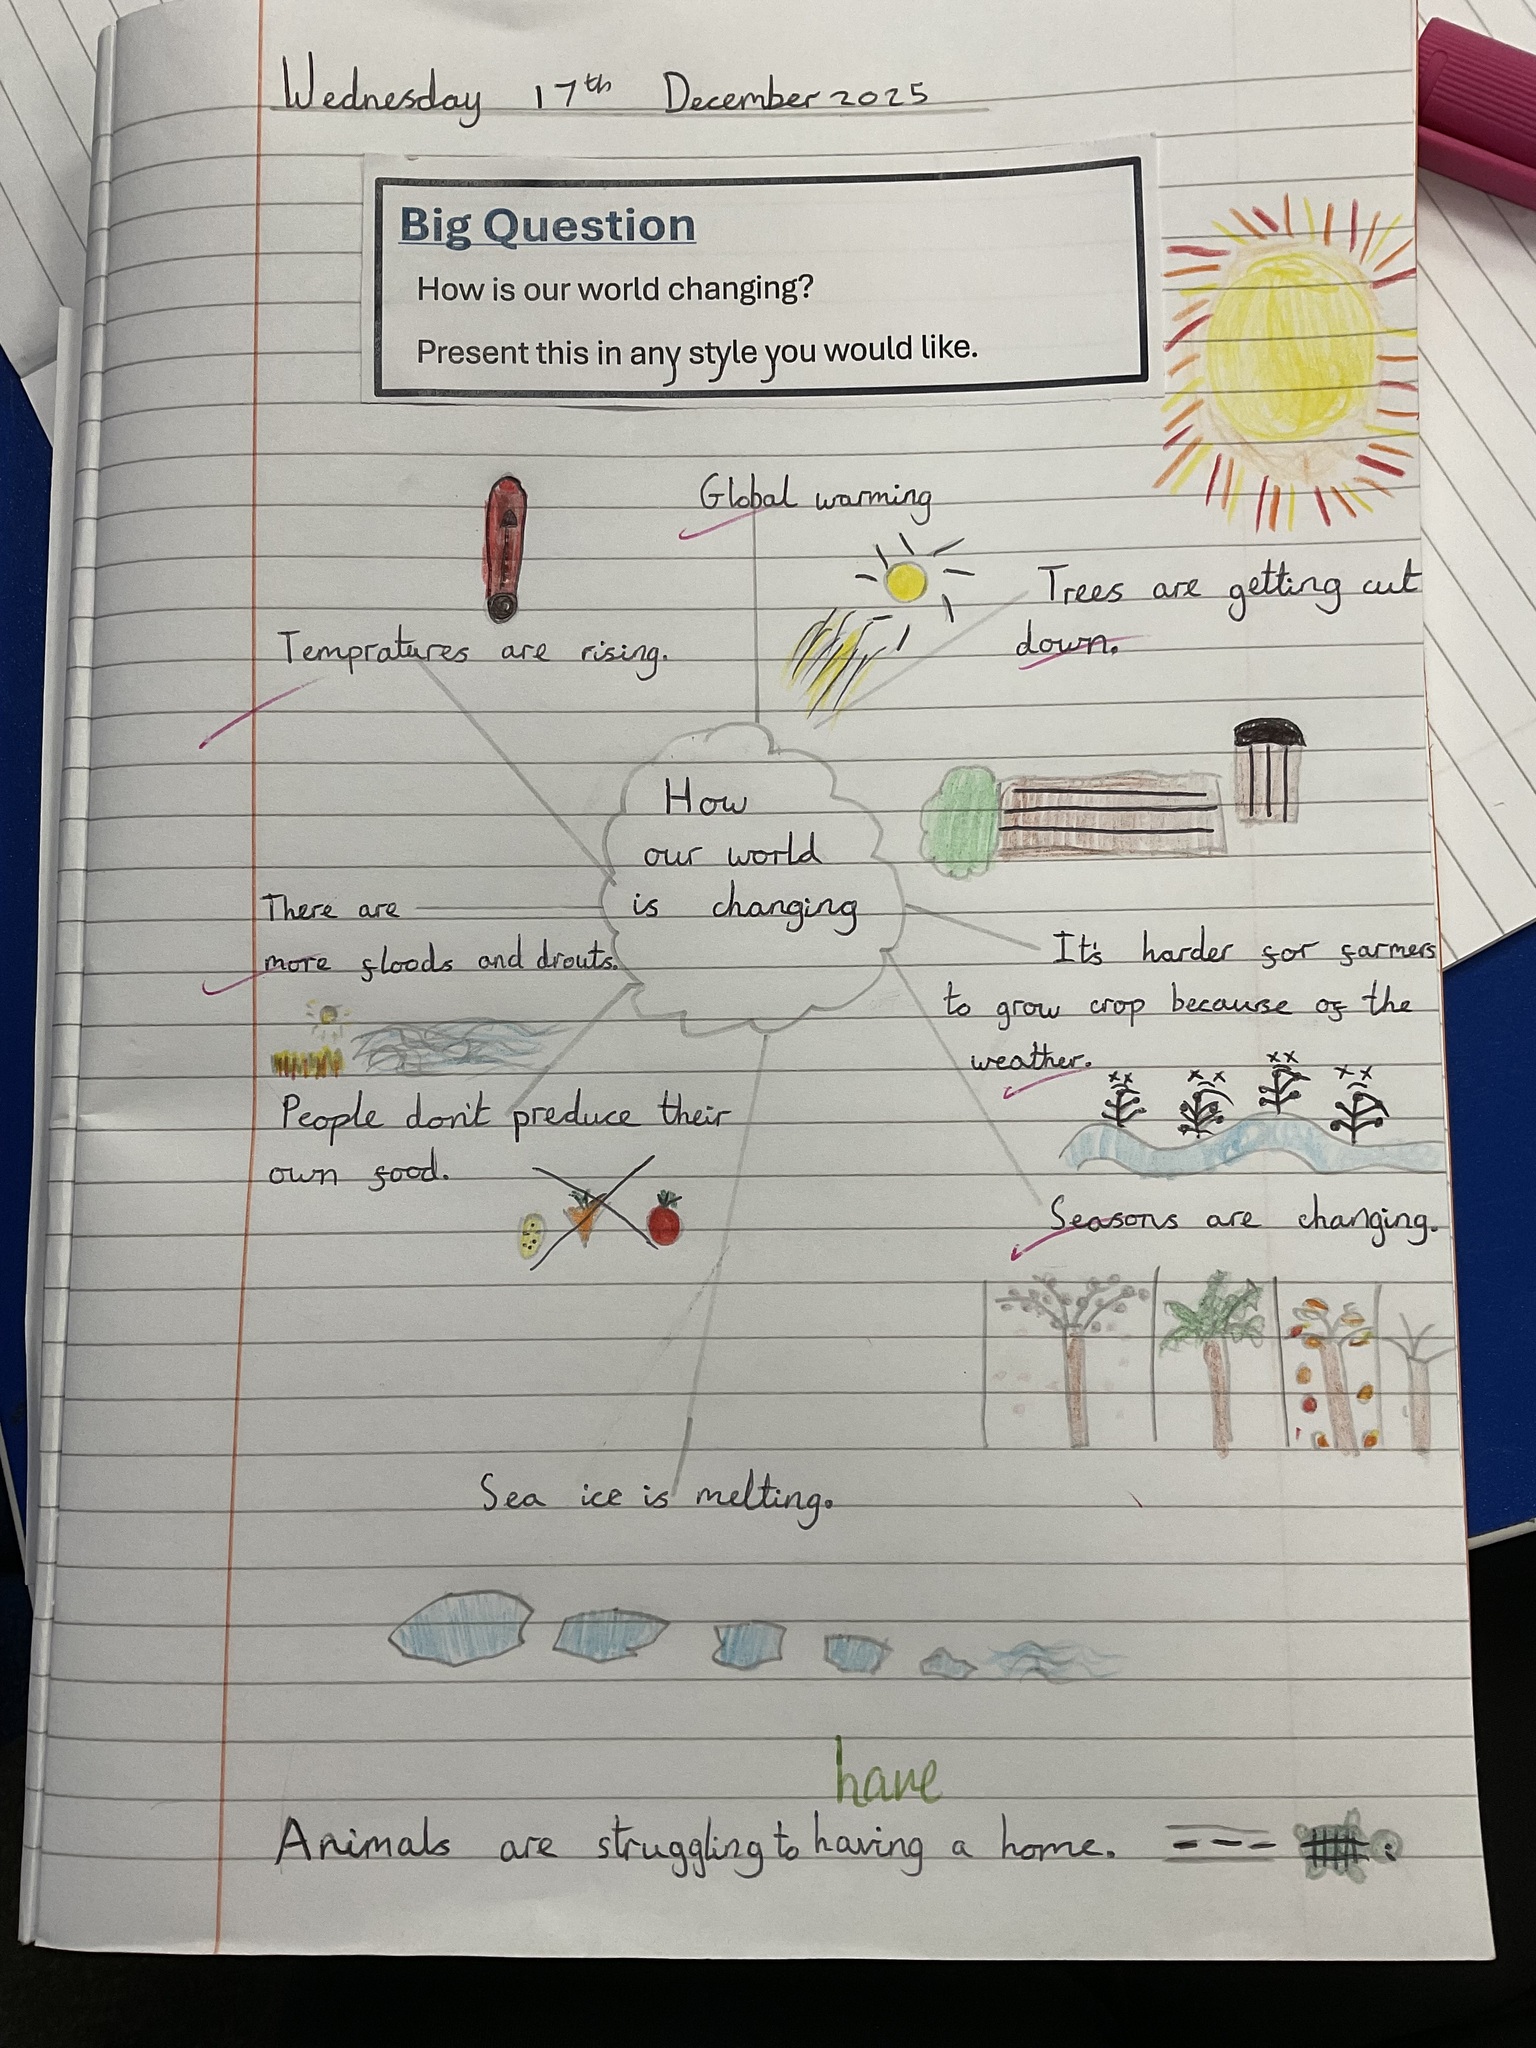 Wednesday 17th December 2025
Big Question
How is our world changing?
Present this in any style you would like.
Global warming
Trees are getting cut
down.
Tempratures are rising.
How
our world
is changing
There are
more floods and drouts.
It's harder for farmers
to grow crop because of the
weather.
People don't preduce their
own food.
Seasons are changing.
Sea ice is melting.
have
Animals are struggling to having a home.